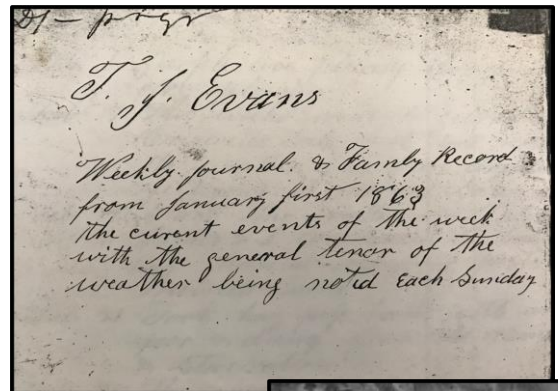 T. J. Evans
Weekly journal. & Family Record
from January first 1863
the curent events of the week
with the general tenor of the
weather being notd Each Sunday